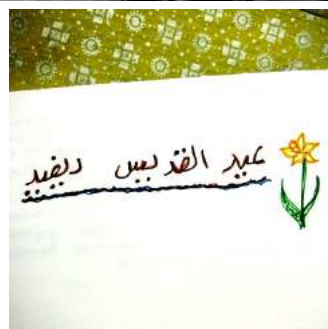 عيد القديس ديفيد